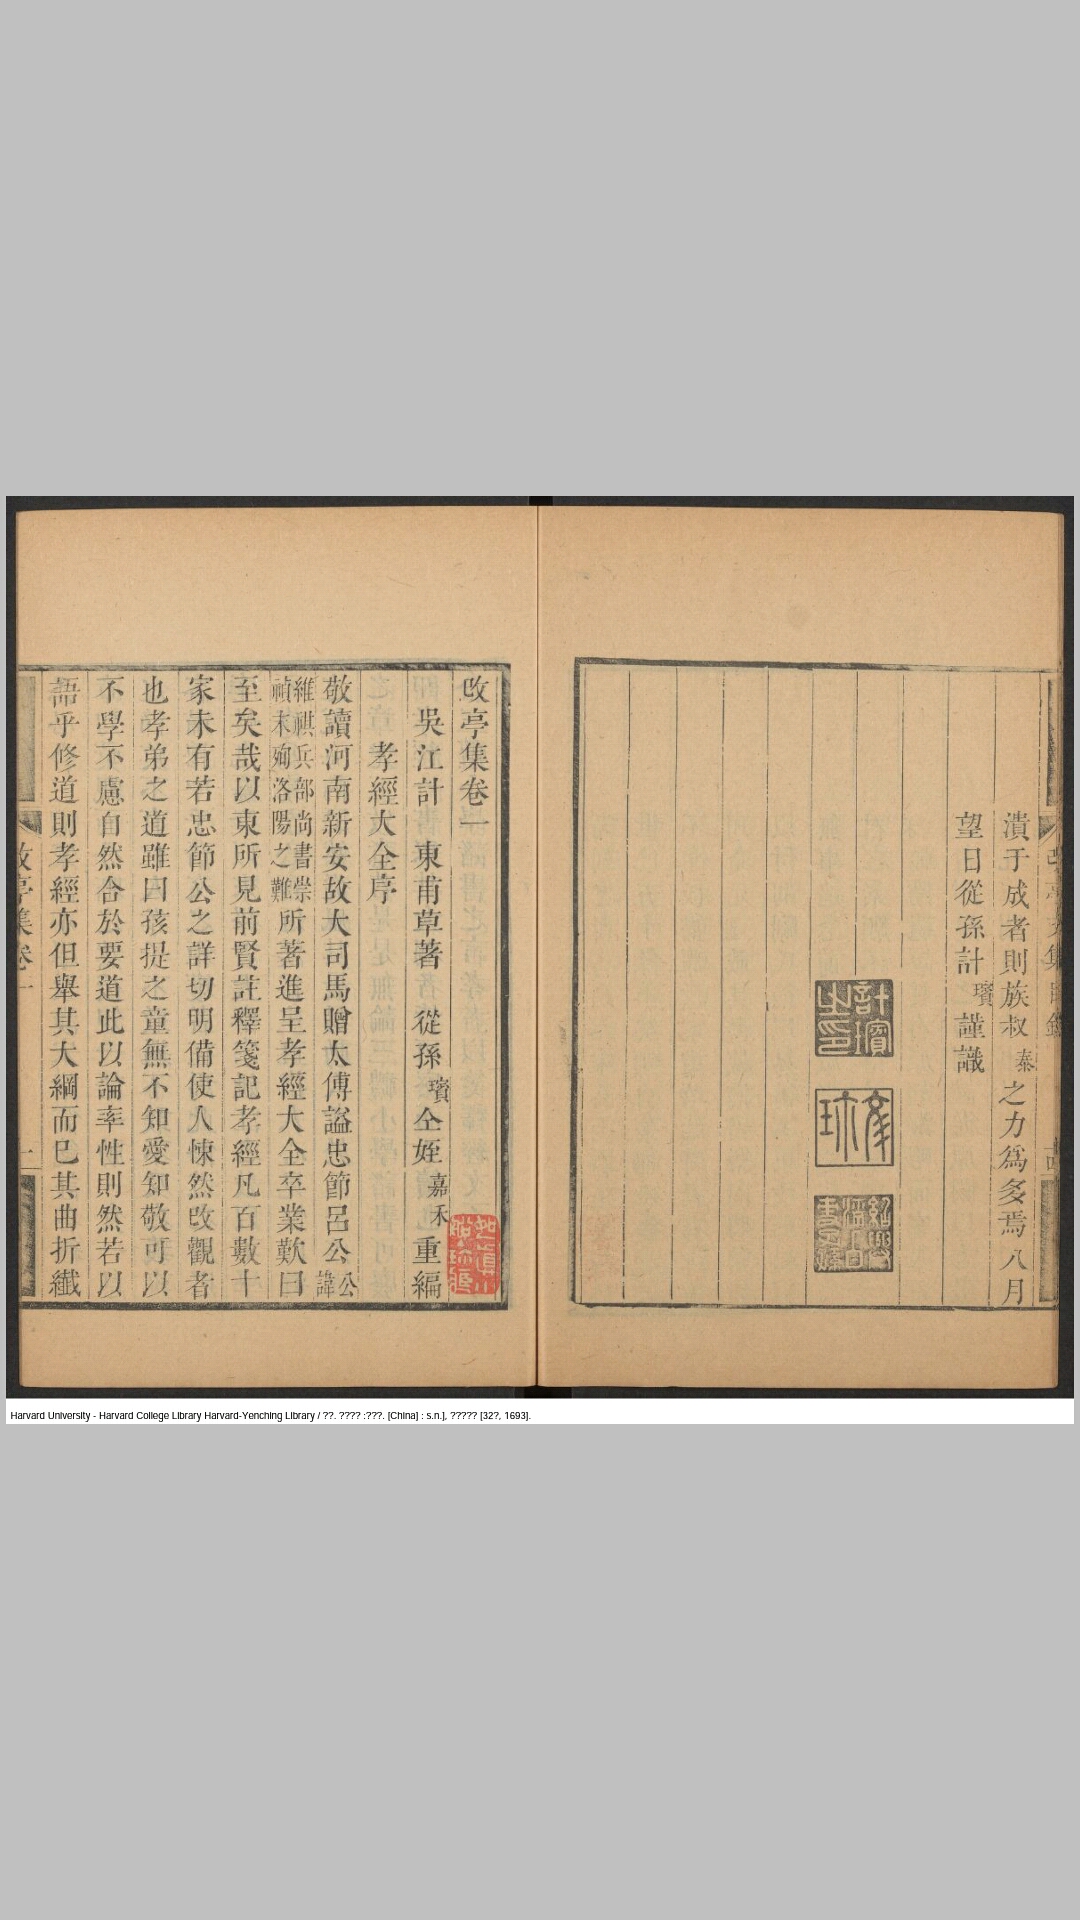 潰于成者則族叔泰之力爲多焉八月
望日從孫計璸謹識
計璸之印
改亭集卷一
吳江計 東甫草著 從孫璸仝姪嘉禾重編
孝經大全序
敬讀河南新安故大司馬贈太傅謚忠節呂公公諱
維祺兵部尚書崇禎末殉洛陽之難所著進呈孝經大全卒業歎曰
至矣哉以東所見前賢註釋箋記孝經凡百數十
家未有若忠節公之詳切明備使人悚然改觀者
也孝弟之道雖曰孩提之童無不知愛知敬可以
不學不慮自然合於要道此以論率性則然若以
語乎修道則孝經亦但舉其大綱而已其曲折纖
改亭集卷一
一
Harvard University - Harvard College Library Harvard-Yenching Library / ??. ???? :???. [China] : s.n.], ????? [32?, 1693].